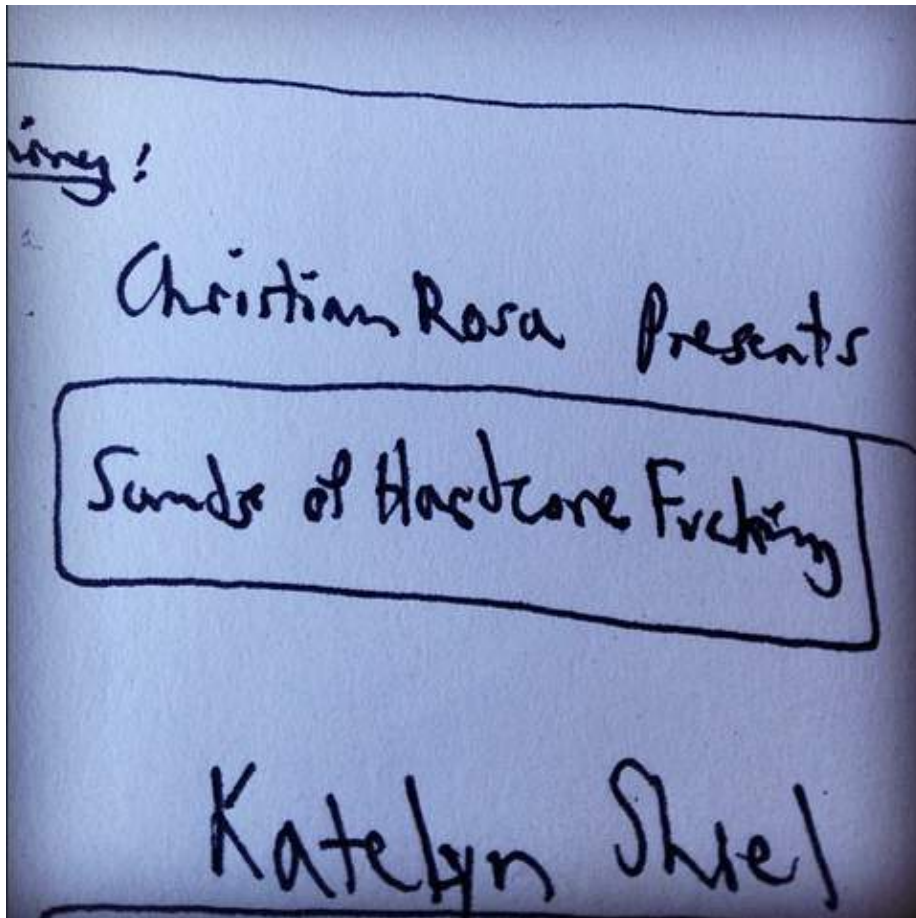 Christian Rosa Presents
Sounds of Hardcore Fucking
Katelyn Shiel